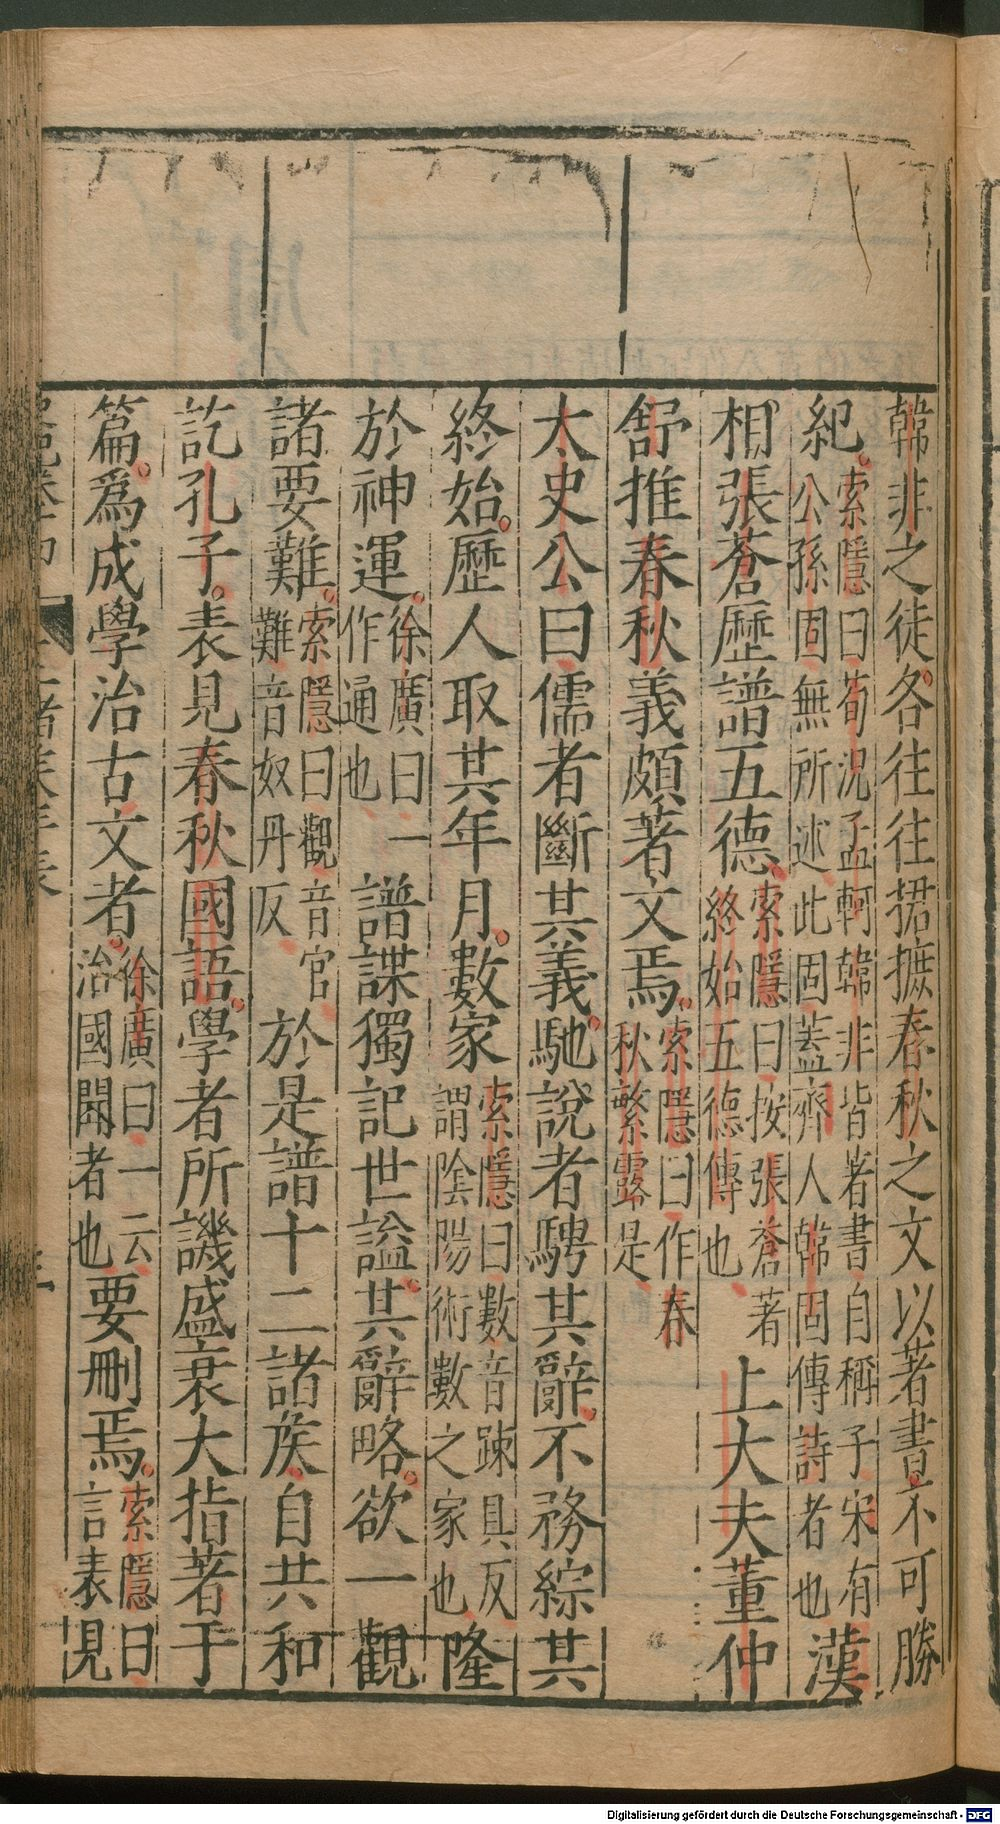 韓非之徒各往往捃摭春秋之文以著書不可勝
紀索隱曰荀况孟軻韓非皆著書自稱子宋有公孫固無所述此固蓋齊人韓固傳詩者也漢
相張蒼歷譜五德索隱曰按張蒼著終始五德傳也上大夫董仲
舒推春秋義頗著文焉索隱曰作春秋繁露是
太史公曰儒者斷其義馳說者騁其辭不務綜其
終始歷人取其年月數家索隱曰數音疎具反謂陰陽術數之家也隆
於神運徐廣曰一作通也譜諜獨記世謚其辭略欲一觀
諸要難索隱曰觀音官難音奴丹反於是譜十二諸矦自共和
訖孔子表見春秋國語學者所譏盛衰大指著于
篇爲成學治古文者徐廣曰一云治國聞者也要刪焉索隱曰言表見
Digitalisierung gefördert durch die Deutsche Forschungsgemeinschaft - DFG